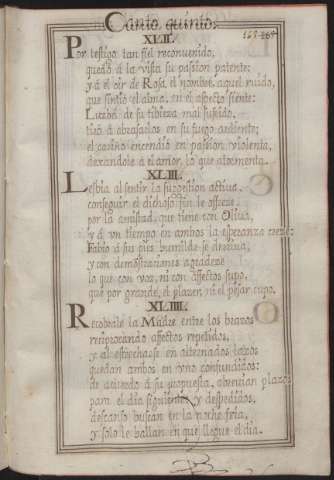 Canto quinto.
XLII.
Por testigo tan fiel reconvenido,
quedó à la vista su passion patente;
y à el oìr de Rosa, el nombre, aquel ruido,
que sintiò el alma, en el aspecto siente:
de su tibieza mal sufrido,
tirò à abrasarlos en su fuego ardiente;
el cariño encendio en passion violenta,
dexandole à el amor, lo que atormenta.
XLIII.
Lesbia al sentir la sugestion activa,
conseguir el dichoso fin le ofrece,
por la amistad, que tiene con Oliva,
y à un tiempo en ambos la esperanza crece:
Fabio à sus pies humilde se derriva,
y con demostraciones agradece
lo que con voz, ni con affectos supo,
que por grande, el placer, ni el pesar cupo.
XLIIII.
Recobale la Madre entre los brazos
reciprocando affectos repetidos,
y al estrecharse en alternados lazos
quedan ambos en uno confundidos:
de acuerdo à su propuesta, abrevian plazos
para el dia siguiente, y despedidos,
descanso buscan en la noche fria,
y solo le hallan en que llegue el dia.